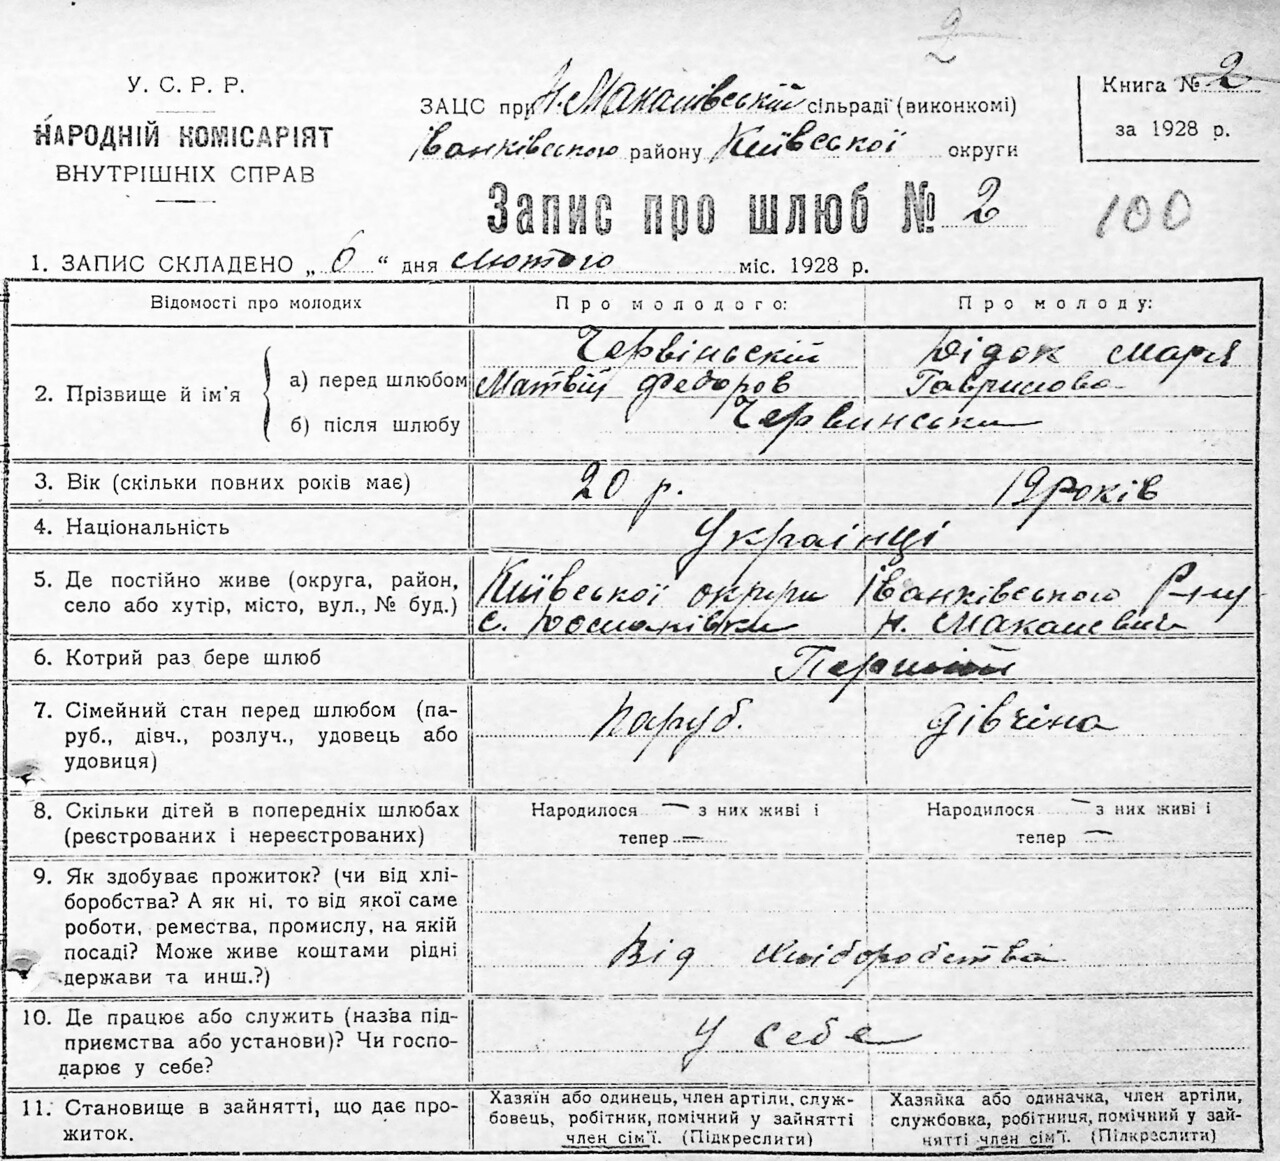 2
У. С. Р. Р.
НАРОДНІЙ КОМІСАРІЯТ
ВНУТРІШНІХ СПРАВ
ЗАЦС при Н. Макалівській сільраді (виконкомі)
Іванківського району Київської округи
Книга № 2
за 1928 р.
Запис про шлюб № 2
100
1. ЗАПИС СКЛАДЕНО „ 6 “ дня лютого міс. 1928 р.
Відомості про молодих
Про молодого:
Про молоду:
2. Прізвище й ім'я
а) перед шлюбом
Червінський
Матвій Федоров
Дідок Марія
Гаврилова
б) після шлюбу
Червинськи
3. Вік (скільки повних років має)
20 р.
19 років
4. Національність
Українці
5. Де постійно живе (округа, район,
село або хутір, місто, вул., № буд.)
Київської округи Іванківського Р-ну
с. Н. Макалевич
6. Котрий раз бере шлюб
Перший
7. Сімейний стан перед шлюбом (па-
руб., дівч., розлуч., удовець або
удовиця)
Паруб.
Дівчіна
8. Скільки дітей в попередніх шлюбах
(реєстрованих і нереєстрованих)
Народилося — з них живі і
тепер —
Народилося — з них живі і
тепер —
9. Як здобуває прожиток? (чи від хлі-
боробства? А як ні, то від якої саме
роботи, ремества, промислу, на якій
посаді? Може живе коштами рідні
держави та инш.?)
Від хліборобства
10. Де працює або служить (назва під-
приємства або установи)? Чи госпо-
дарює у себе?
У себе
11. Становище в зайнятті, що дає про-
житок.
Хазяїн або одинець, член артіли, служ-
бовець, робітник, помічний у зайнятті
член сім'ї. (Підкреслити)
Хазяйка або одиначка, член артіли,
службовка, робітниця, помічний у зай-
нятті член сім'ї. (Підкреслити)